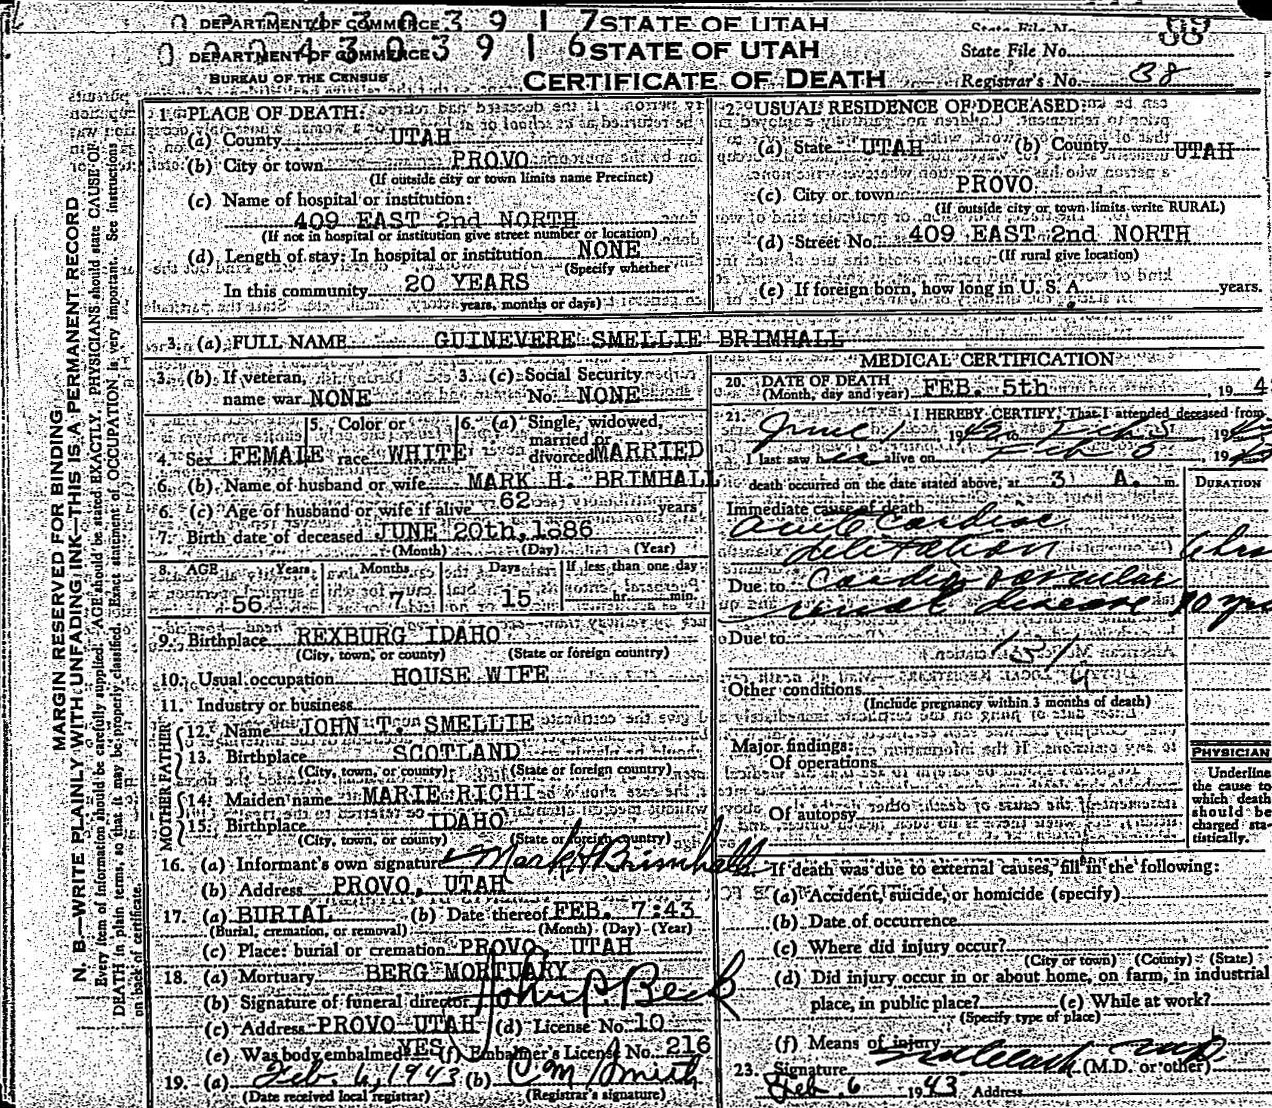 DEPARTMENT OF COMMERCE STATE OF UTAH State File No.
DEPARTMENT OF COMMERCE STATE OF UTAH State File No.
BUREAU OF THE CENSUS CERTIFICATE OF DEATH Registrar's No. 38
MARGIN RESERVED FOR BINDING
N. B.—WRITE PLAINLY WITH UNFADING INK—THIS IS A PERMANENT RECORD
Every item of information should be carefully supplied. AGE should be stated EXACTLY. PHYSICIANS should state CAUSE OF
DEATH in plain terms, so that it may be properly classified. Exact statement of OCCUPATION is very important. See instructions
on back of certificate.
1. PLACE OF DEATH:
(a) County UTAH
(b) City or town PROVO
(If outside city or town limits name Precinct)
(c) Name of hospital or institution:
409 EAST 2nd NORTH
(If not in hospital or institution give street number or location)
(d) Length of stay: In hospital or institution NONE
(Specify whether
In this community 20 YEARS
years, months or days)
2. USUAL RESIDENCE OF DECEASED:
(a) State UTAH (b) County UTAH
(c) City or town PROVO
(If outside city or town limits write RURAL)
(d) Street No. 409 EAST 2nd NORTH
(If rural give location)
(e) If foreign born, how long in U. S. A. years.
3. (a) FULL NAME GUINEVERE SMELLIE BRIMHALL
3. (b) If veteran, 3. (c) Social Security
name war NONE No. NONE
5. Color or 6. (a) Single, widowed,
married or
4. Sex FEMALE race WHITE divorced MARRIED
6. (b) Name of husband or wife MARK H. BRIMHALL
6. (c) Age of husband or wife if alive 62 years
7. Birth date of deceased JUNE 20th, 1886
(Month) (Day) (Year)
8. AGE Years Months Days If less than one day
56 7 15 hr. min.
9. Birthplace REXBURG IDAHO
(City, town, or county) (State or foreign country)
10. Usual occupation HOUSE WIFE
11. Industry or business
FATHER
12. Name JOHN T. SMELLIE
13. Birthplace SCOTLAND
(City, town, or county) (State or foreign country)
MOTHER
14. Maiden name MARIE RICHI
15. Birthplace IDAHO
(City, town, or county) (State or foreign country)
16. (a) Informant's own signature Mark H Brimhall
(b) Address PROVO, UTAH
17. (a) BURIAL (b) Date thereof FEB. 7:43
(Burial, cremation, or removal) (Month) (Day) (Year)
(c) Place: burial or cremation PROVO UTAH
18. (a) Mortuary BERG MORTUARY
(b) Signature of funeral director John P. Beck
(c) Address PROVO UTAH (d) License No. 10
(e) Was body embalmed YES (f) Embalmer's License No. 216
19. (a) Feb. 6, 1943 (b) C M Smith
(Date received local registrar) (Registrar's signature)
MEDICAL CERTIFICATION
20. DATE OF DEATH FEB. 5th, 194
(Month, day and year)
21. I HEREBY CERTIFY, That I attended deceased from
June 1 to Feb 5
I last saw her alive on Feb 5
death occurred on the date stated above, at 3 A. m. DURATION
Immediate cause of death
acute cardiac
dilitation 6 hrs
Due to Cardio vascular
renal disease 10 yrs
Due to
Other conditions
(Include pregnancy within 3 months of death)
Major findings:
Of operations
Of autopsy
PHYSICIAN
Underline
the cause to
which death
should be
charged sta-
tistically.
If death was due to external causes, fill in the following:
(a) Accident, suicide, or homicide (specify)
(b) Date of occurrence
(c) Where did injury occur?
(City or town) (County) (State)
(d) Did injury occur in or about home, on farm, in industrial
place, in public place? (e) While at work?
(Specify type of place)
(f) Means of injury
23. Signature (M.D. or other)
Feb. 6 1943 Address